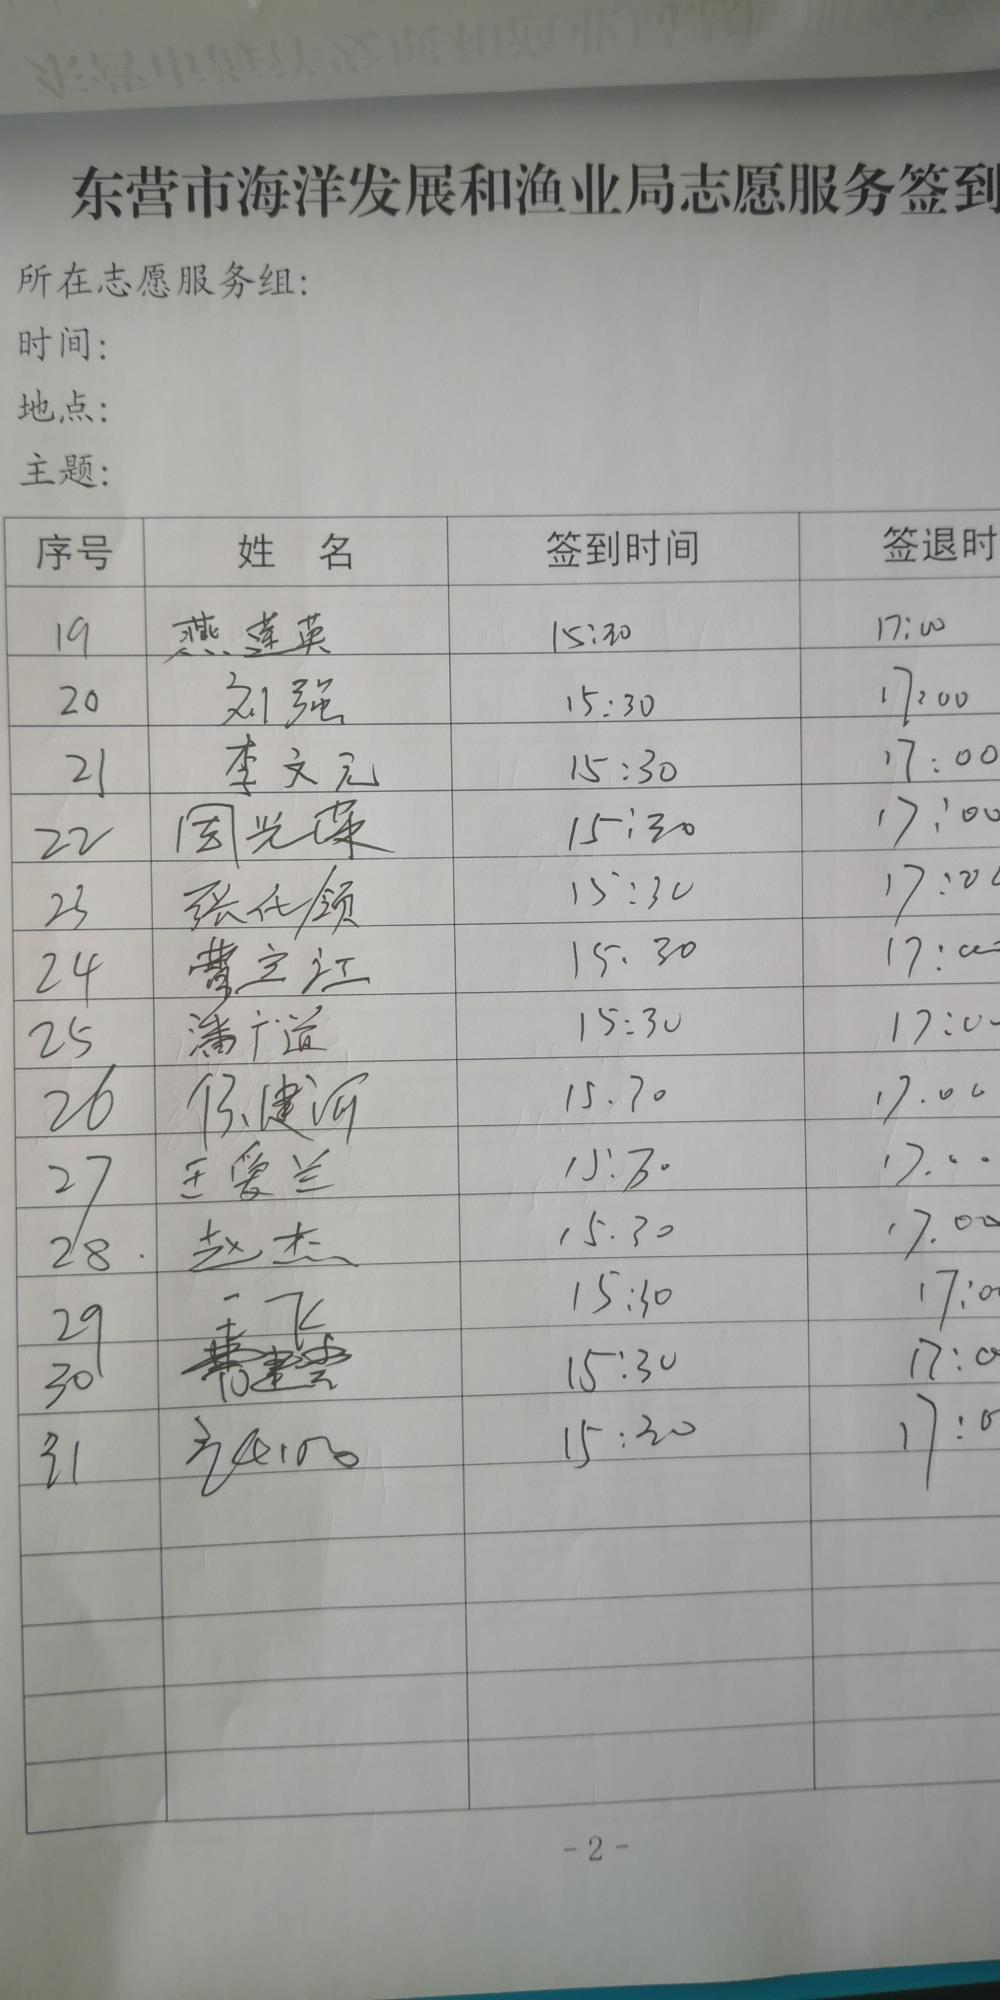 东营市海洋发展和渔业局志愿服务签到
所在志愿服务组:
时间:
地点:
主题:
序号 姓 名 签到时间 签退时
19 燕莲英 15:30 17:00
20 刘强 15:30 17:00
21 李文元 15:30 17:00
22 周光荣 15:30 17:00
23 张代领 15:30 17:00
24 曹立江 15:30 17:00
25 潘广道 15:30 17:00
26 侯建河 15.30 17.00
27 王爱兰 15:30 17.00
28. 赵杰 15.30 17.00
29 王飞 15:30 17:00
30 15:30 17:0
31 15:30 17:0
-2-